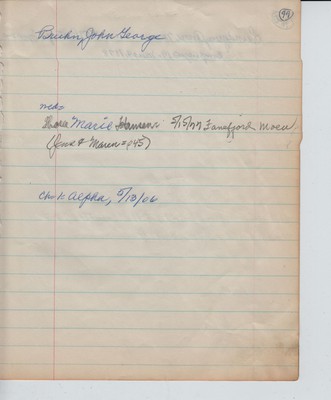 94
Bruhn, John George
md:
Thora Marie Hansen: 5/15/77 Fanefjord Moen
(Jens & Maren = p45)
Ch: 1. Alpha, 5/10/06